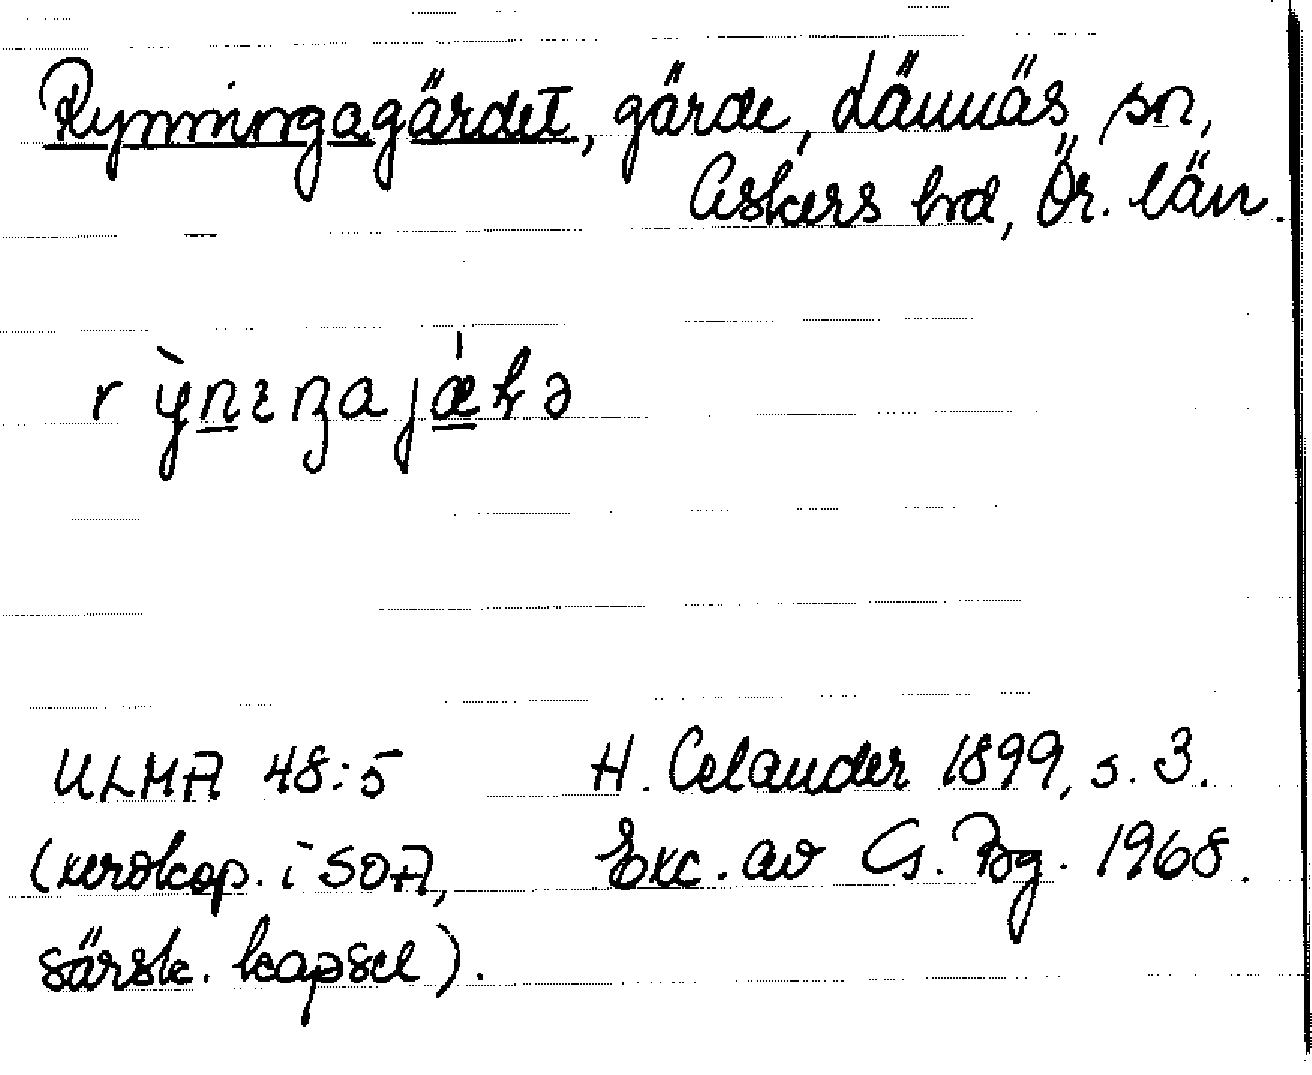 Rynningagärdet, gärde, Lännäs sn,
Askers hrd, Ör. län.
ULMA 48:5 H. Celander 1899, s. 3.
(xerokop. i SOA, Exc. av G. Bg. 1968.
särsk. kapsel).